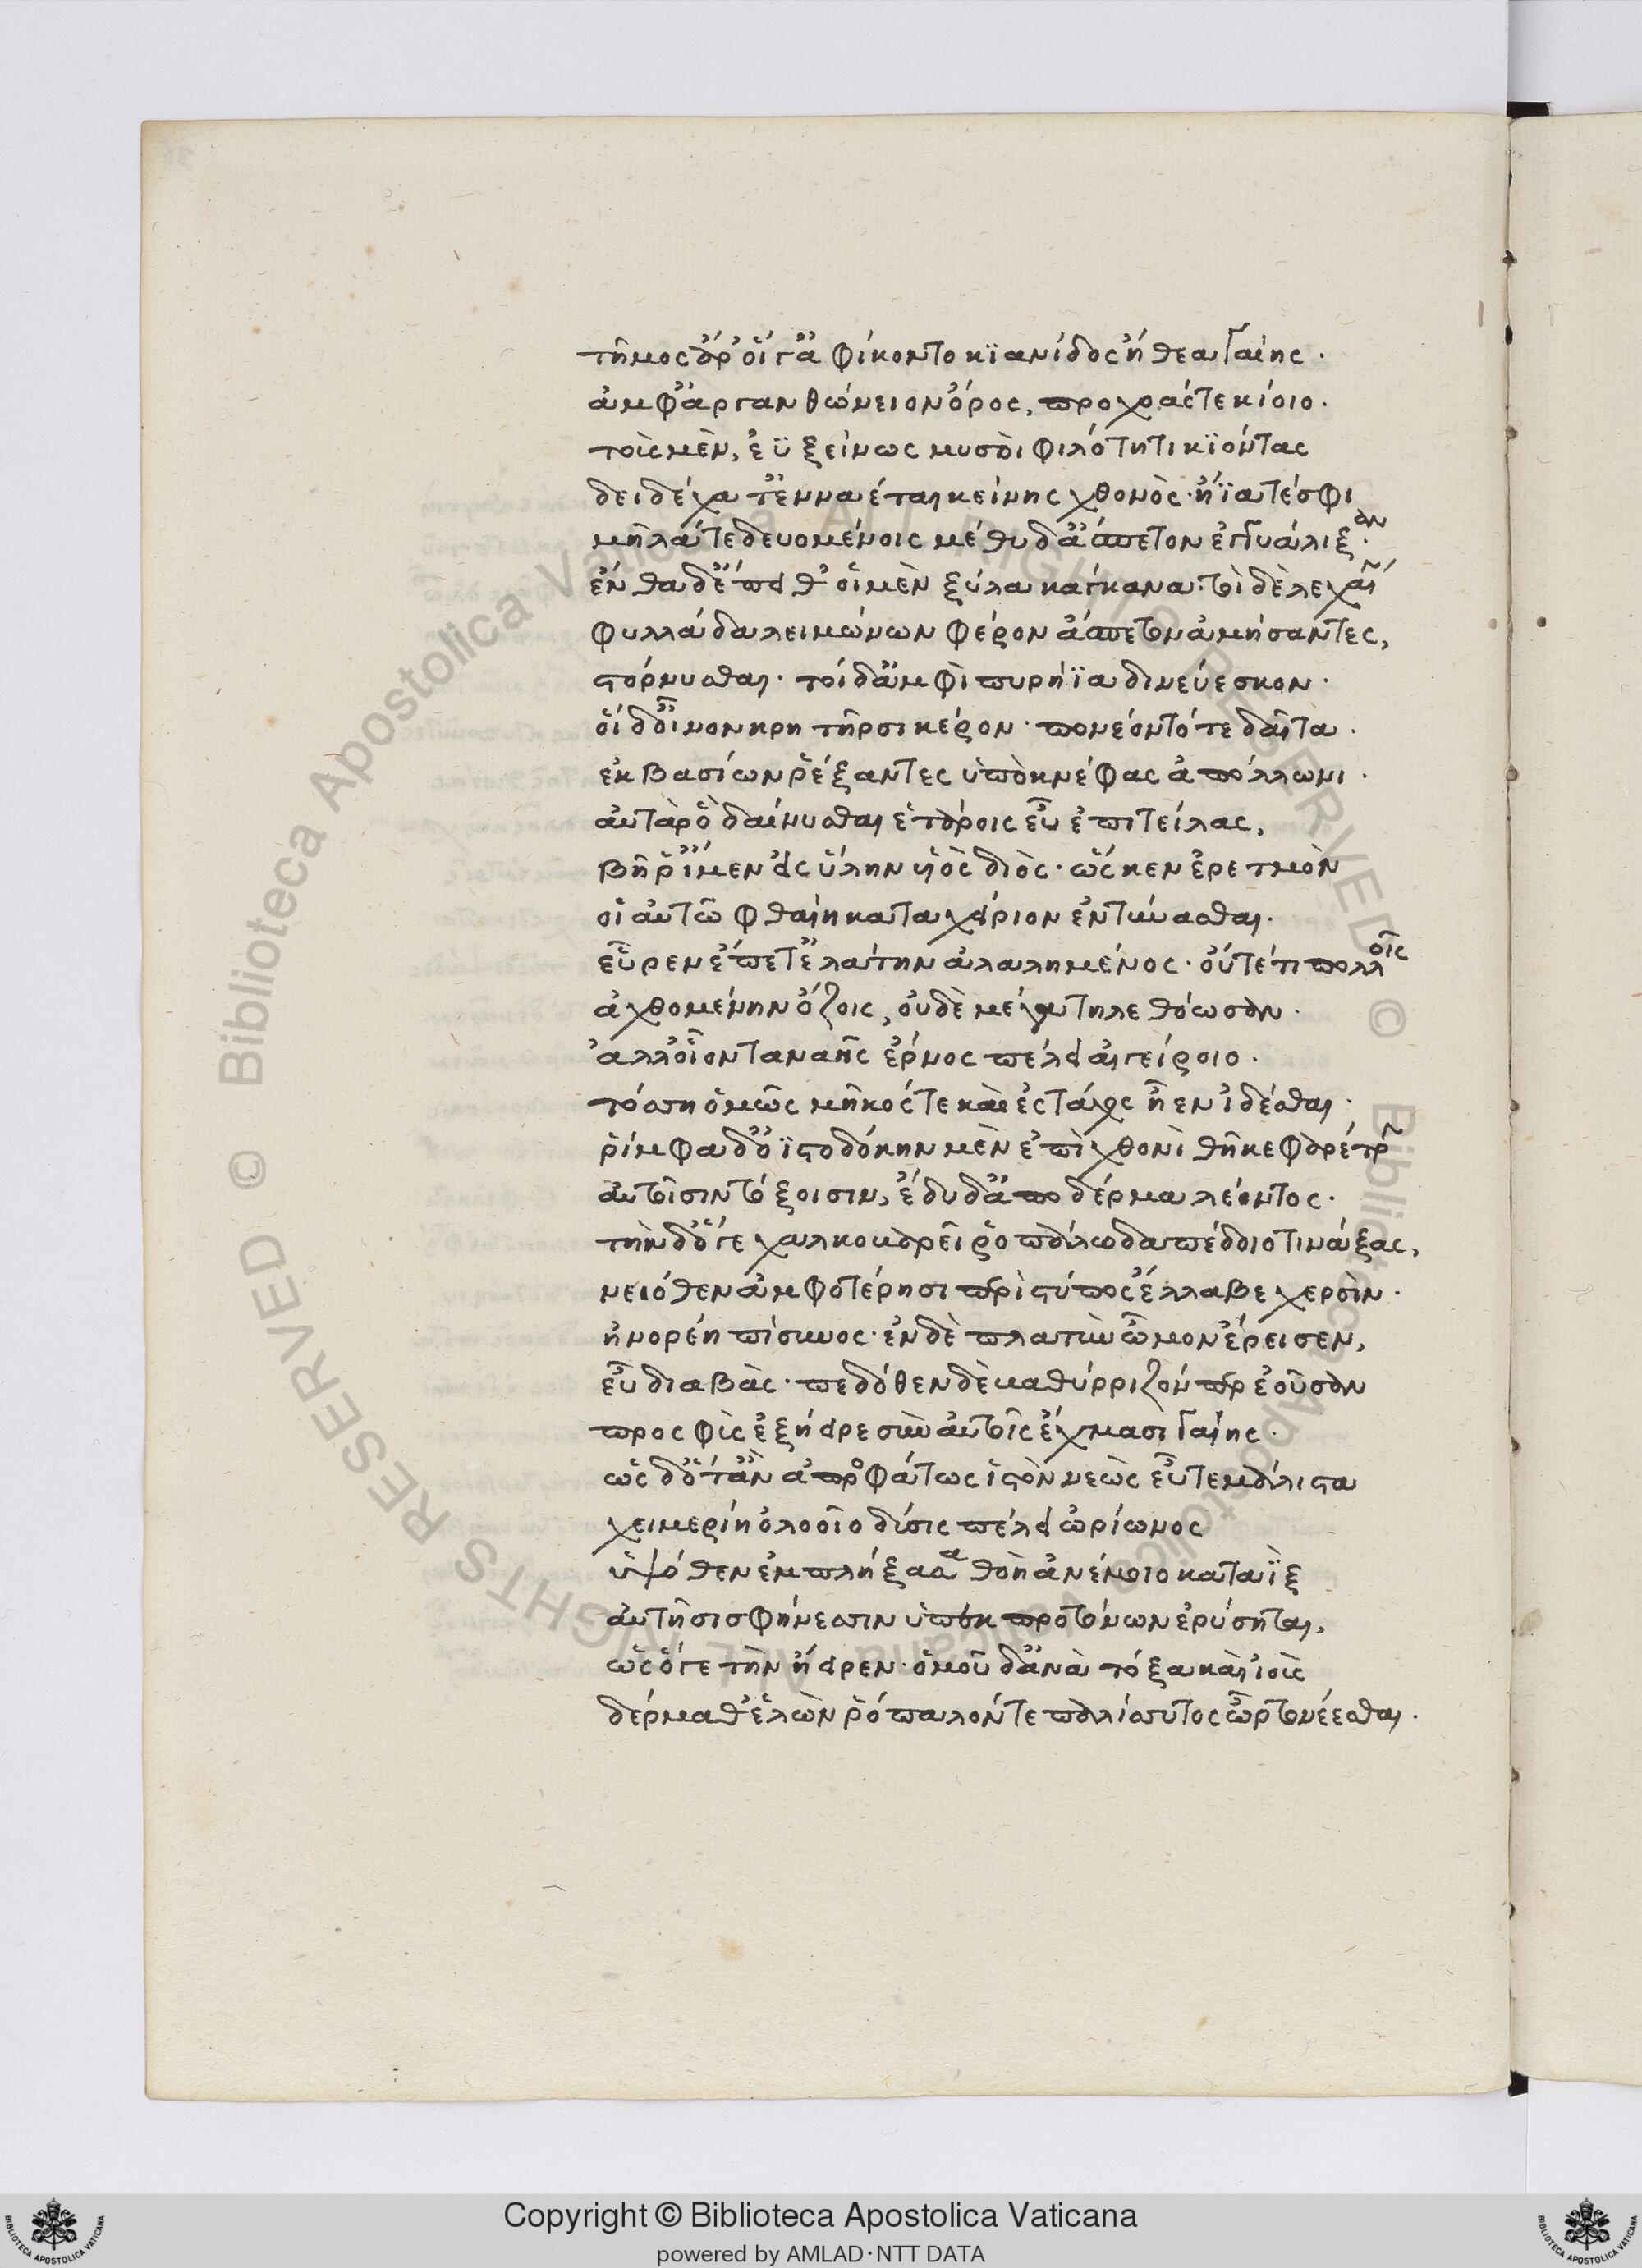 τῆμος ἄρ' οἵ γ' ἀφίκοντο κϊανίδος ἤθεα γαίης.
ἀμφ' ἀργανθώνειον ὄρος, προχοάς τε κίοιο.
τοὺς μὲν, ἐϋξείνως μυσοὶ φιλότητι κϊόντας
δειδέχατ' ἐνναέται κείνης χθονός· ἤϊά τέ σφι
μῆλά τε δευομένοις μέθυ δ' ἄσπετον ἐγγυάλιξαν.
ἔνθα δ' ἔπειθ' οἱ μὲν ξύλα κάγκανα· τοὶ δὲ λεχαίην
φυλλάδα λειμώνων φέρον ἄσπετον ἀμήσαντες,
στόρνυσθαι. τοὶ δ' ἀμφὶ πυρήϊα δινεύεσκον.
οἱ δ' οἶνον κρητῆρσι κέρον· πονέοντό τε δαῖτα.
ἐκβασίω ῥέξαντες ὑπὸ κνέφας ἀπόλλωνι.
αὐτὰρ ὁ δαίνυσθαι ἑτάροις εὖ ἐπιτείλας,
βῆ ῥ' ἴμεν εἰς ὕλην υἱὸς διός· ὥς κεν ἐρετμὸν
οἷ αὐτῷ φθαίη καταχείριον ἐντύνασθαι.
εὗρεν ἔπειτ' ἐλάτην ἀλαλημένος· οὔτέ τι πολλοῖς
ἀχθομένην ὄζοις, οὐδὲ μέγα τηλεθόωσαν.
ἀλλ' οἷον ταναῆς ἔρνος πέλει αἰγείροιο.
τόσση ὁμῶς μῆκός τε καὶ ἐς πάχος ἦεν ἰδέσθαι.
ῥίμφα δ' ὀϊστοδόκην μὲν ἐπὶ χθονὶ θῆκε φαρέτρην
αὐτοῖσιν τόξοισιν, ἔδυ δ' ἀπὸ δέρμα λέοντος.
τὴν δ' ὅ γε χαλκοβαρεῖ ῥοπάλῳ δαπέδοιο τινάξας,
νειόθεν ἀμφοτέρῃσι περὶ στύπος ἔλλαβε χερσίν.
ἠνορέῃ πίσυνος· ἐν δὲ πλατὺν ὦμον ἔρεισεν,
εὖ διαβάς· πεδόθεν δὲ βαθύρριζόν περ ἐοῦσαν
προσφὺς ἐξήειρε σὺν αὐτοῖς ἔχμασι γαίης.
ὡς δ' ὅταν ἀπροφάτως ἱστὸν νεὼς εὖτε μάλιστα
χειμερίη ὀλοοῖο δύσις πέλει ὠρίωνος
ὑψόθεν ἐμπλήξασα θοὴ ἀνέμοιο κατάϊξ
αὐτῇσι σφήνεσσιν ὑπὲκ προτόνων ἐρύσηται,
ὣς ὅ γε τὴν ἤειρεν· ὁμοῦ δ' ἀνὰ τόξα καὶ ἰοὺς
δέρμα θ' ἑλὼν ῥόπαλόν τε παλίσσυτος ὦρτο νέεσθαι.
Copyright © Biblioteca Apostolica Vaticana
powered by AMLAD·NTT DATA